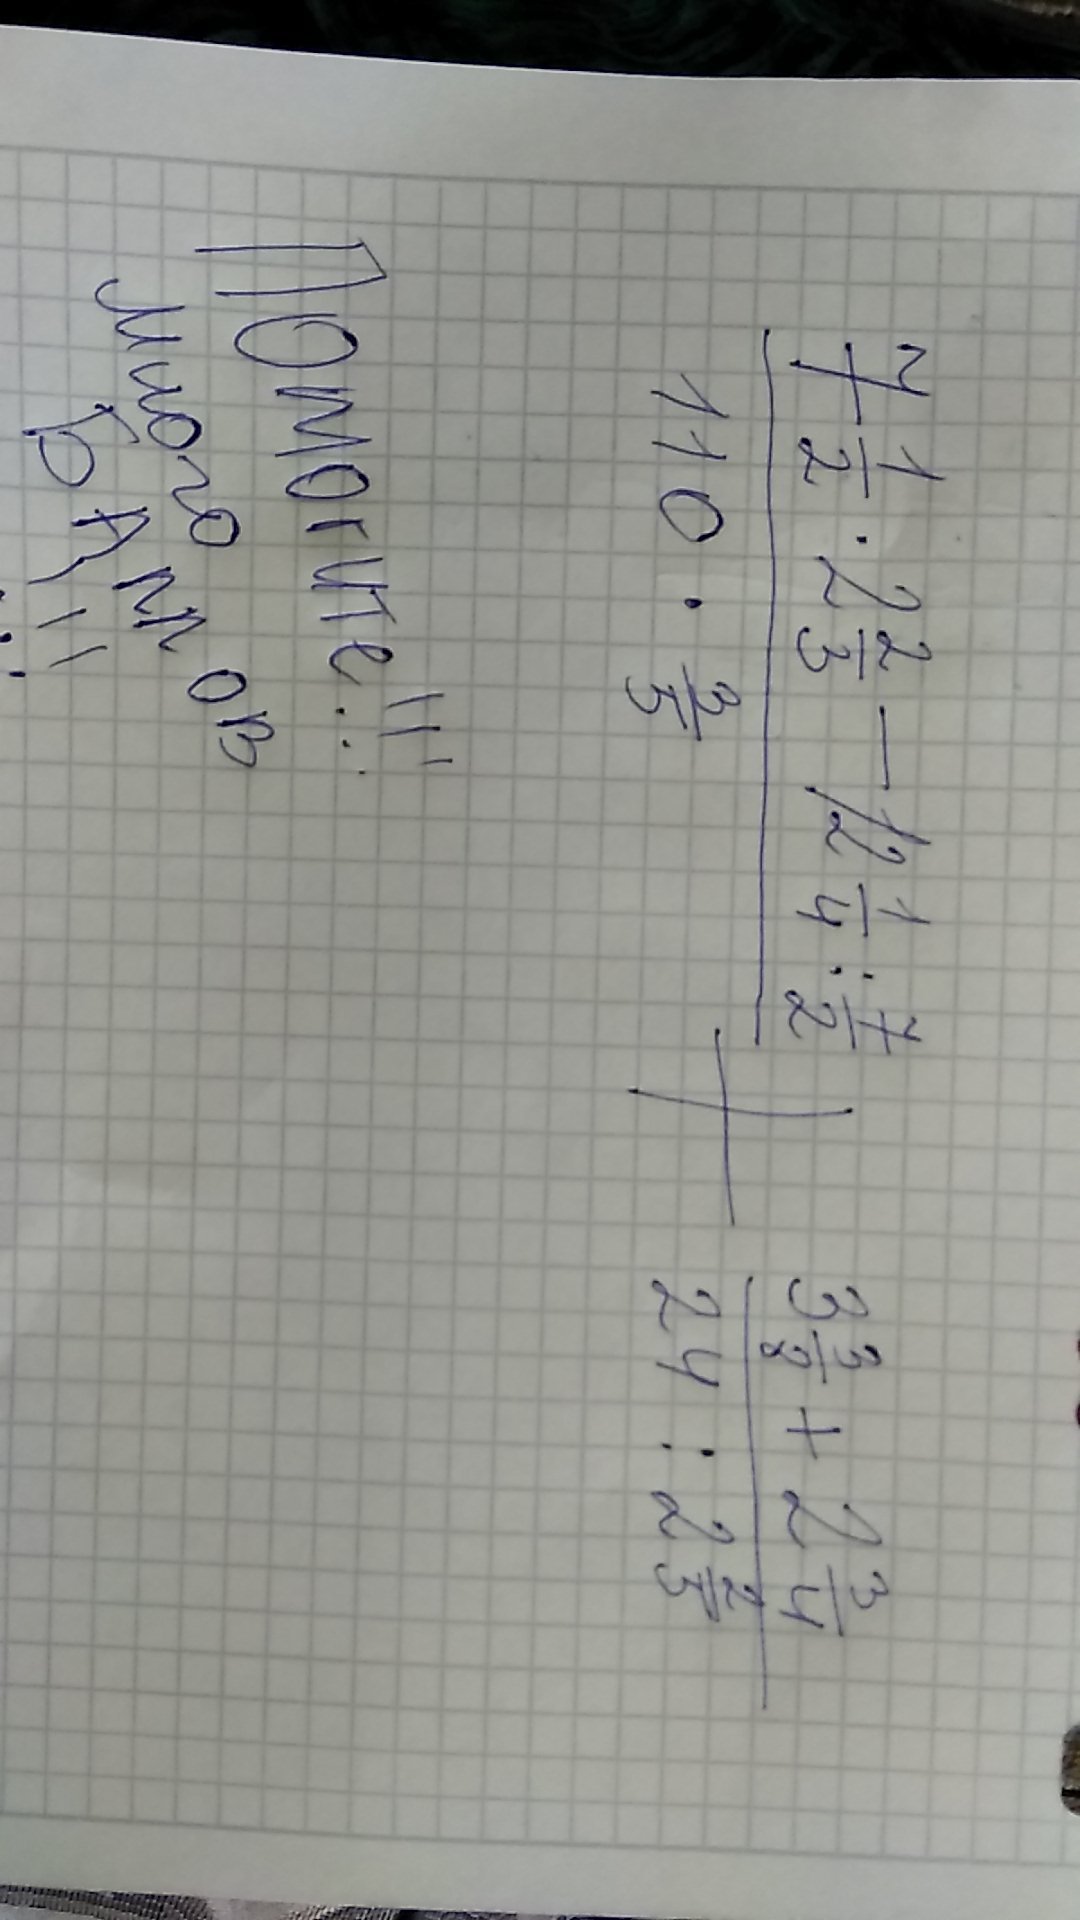 7 1/2 · 2 2/3 — 12 1/4 : 7/2
110 · 3/5
+
3 3/8 + 2 3/4
24 : 2 2/5
Помогите!!!
много
БАллов
!!!